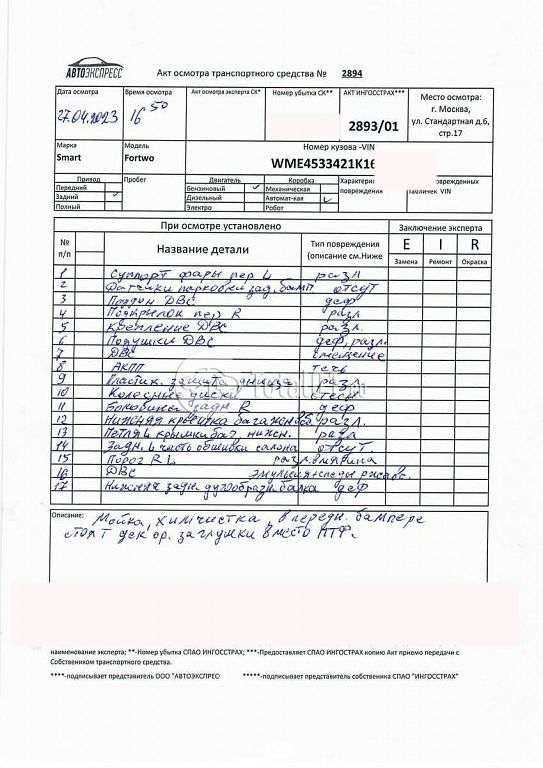 АВТОЭКСПРЕСС
Акт осмотра транспортного средства № 2894
Дата осмотра Время осмотра Акт осмотра эксперта СК* Номер убытка СК** АКТ ИНГОССТРАХ***
27.04.2023 16 50 2893/01
Место осмотра:
г. Москва,
ул. Стандартная д.6,
стр.17
Марка Модель Номер кузова -VIN
Smart Fortwo WME4533421K16
Привод Пробег Двигатель Коробка Характерис повреждения
Передний Бензиновый ✓ Механическая
Задний ✓ Дизельный Автомат-кая ✓
Полный Электро Робот
врежденных
табличек VIN
При осмотре установлено Заключение эксперта
№ п/п Название детали Тип повреждения (описание см.Ниже E I R
Замена Ремонт Окраска
1 Суппорт фары пер L разл
2 Датчики парковки зад. бамп отсут
3 Поддон ДВС деф
4 Подкрылок пер R разл
5 Крепление ДВС разл.
6 Подушки ДВС деф, разл.
7 ДВС смещение
8 АКПП течь
9 Пластик. защита днища разл.
10 Колесные диски
11 задн R деф
12 Нижняя крышка багажника разл.
13 Петля L крышки баг, нижн. разл
14 Задн. L часть обшивки салона отсут
15 Порог R L разл. вмятина
16 ДВС эмульсия+следы ржавч.
17 Нижняя задн. дугообразн. балка деф
TotalD
Описание: Мойка, химчистка, в передн. бампере
стоят декор. заглушки вместо ПТФ.
наименование эксперта; **-Номер убытка СПАО ИНГОССТРАХ; ***-Предоставляет СПАО ИНГОСТРАХ копию Акт приемо передачи с
Собствеником транспортного средства.
****-подписывает представитель ООО "АВТОЭКСПРЕС *****-подписывает представитель собственика СПАО "ИНГОССТРАХ"